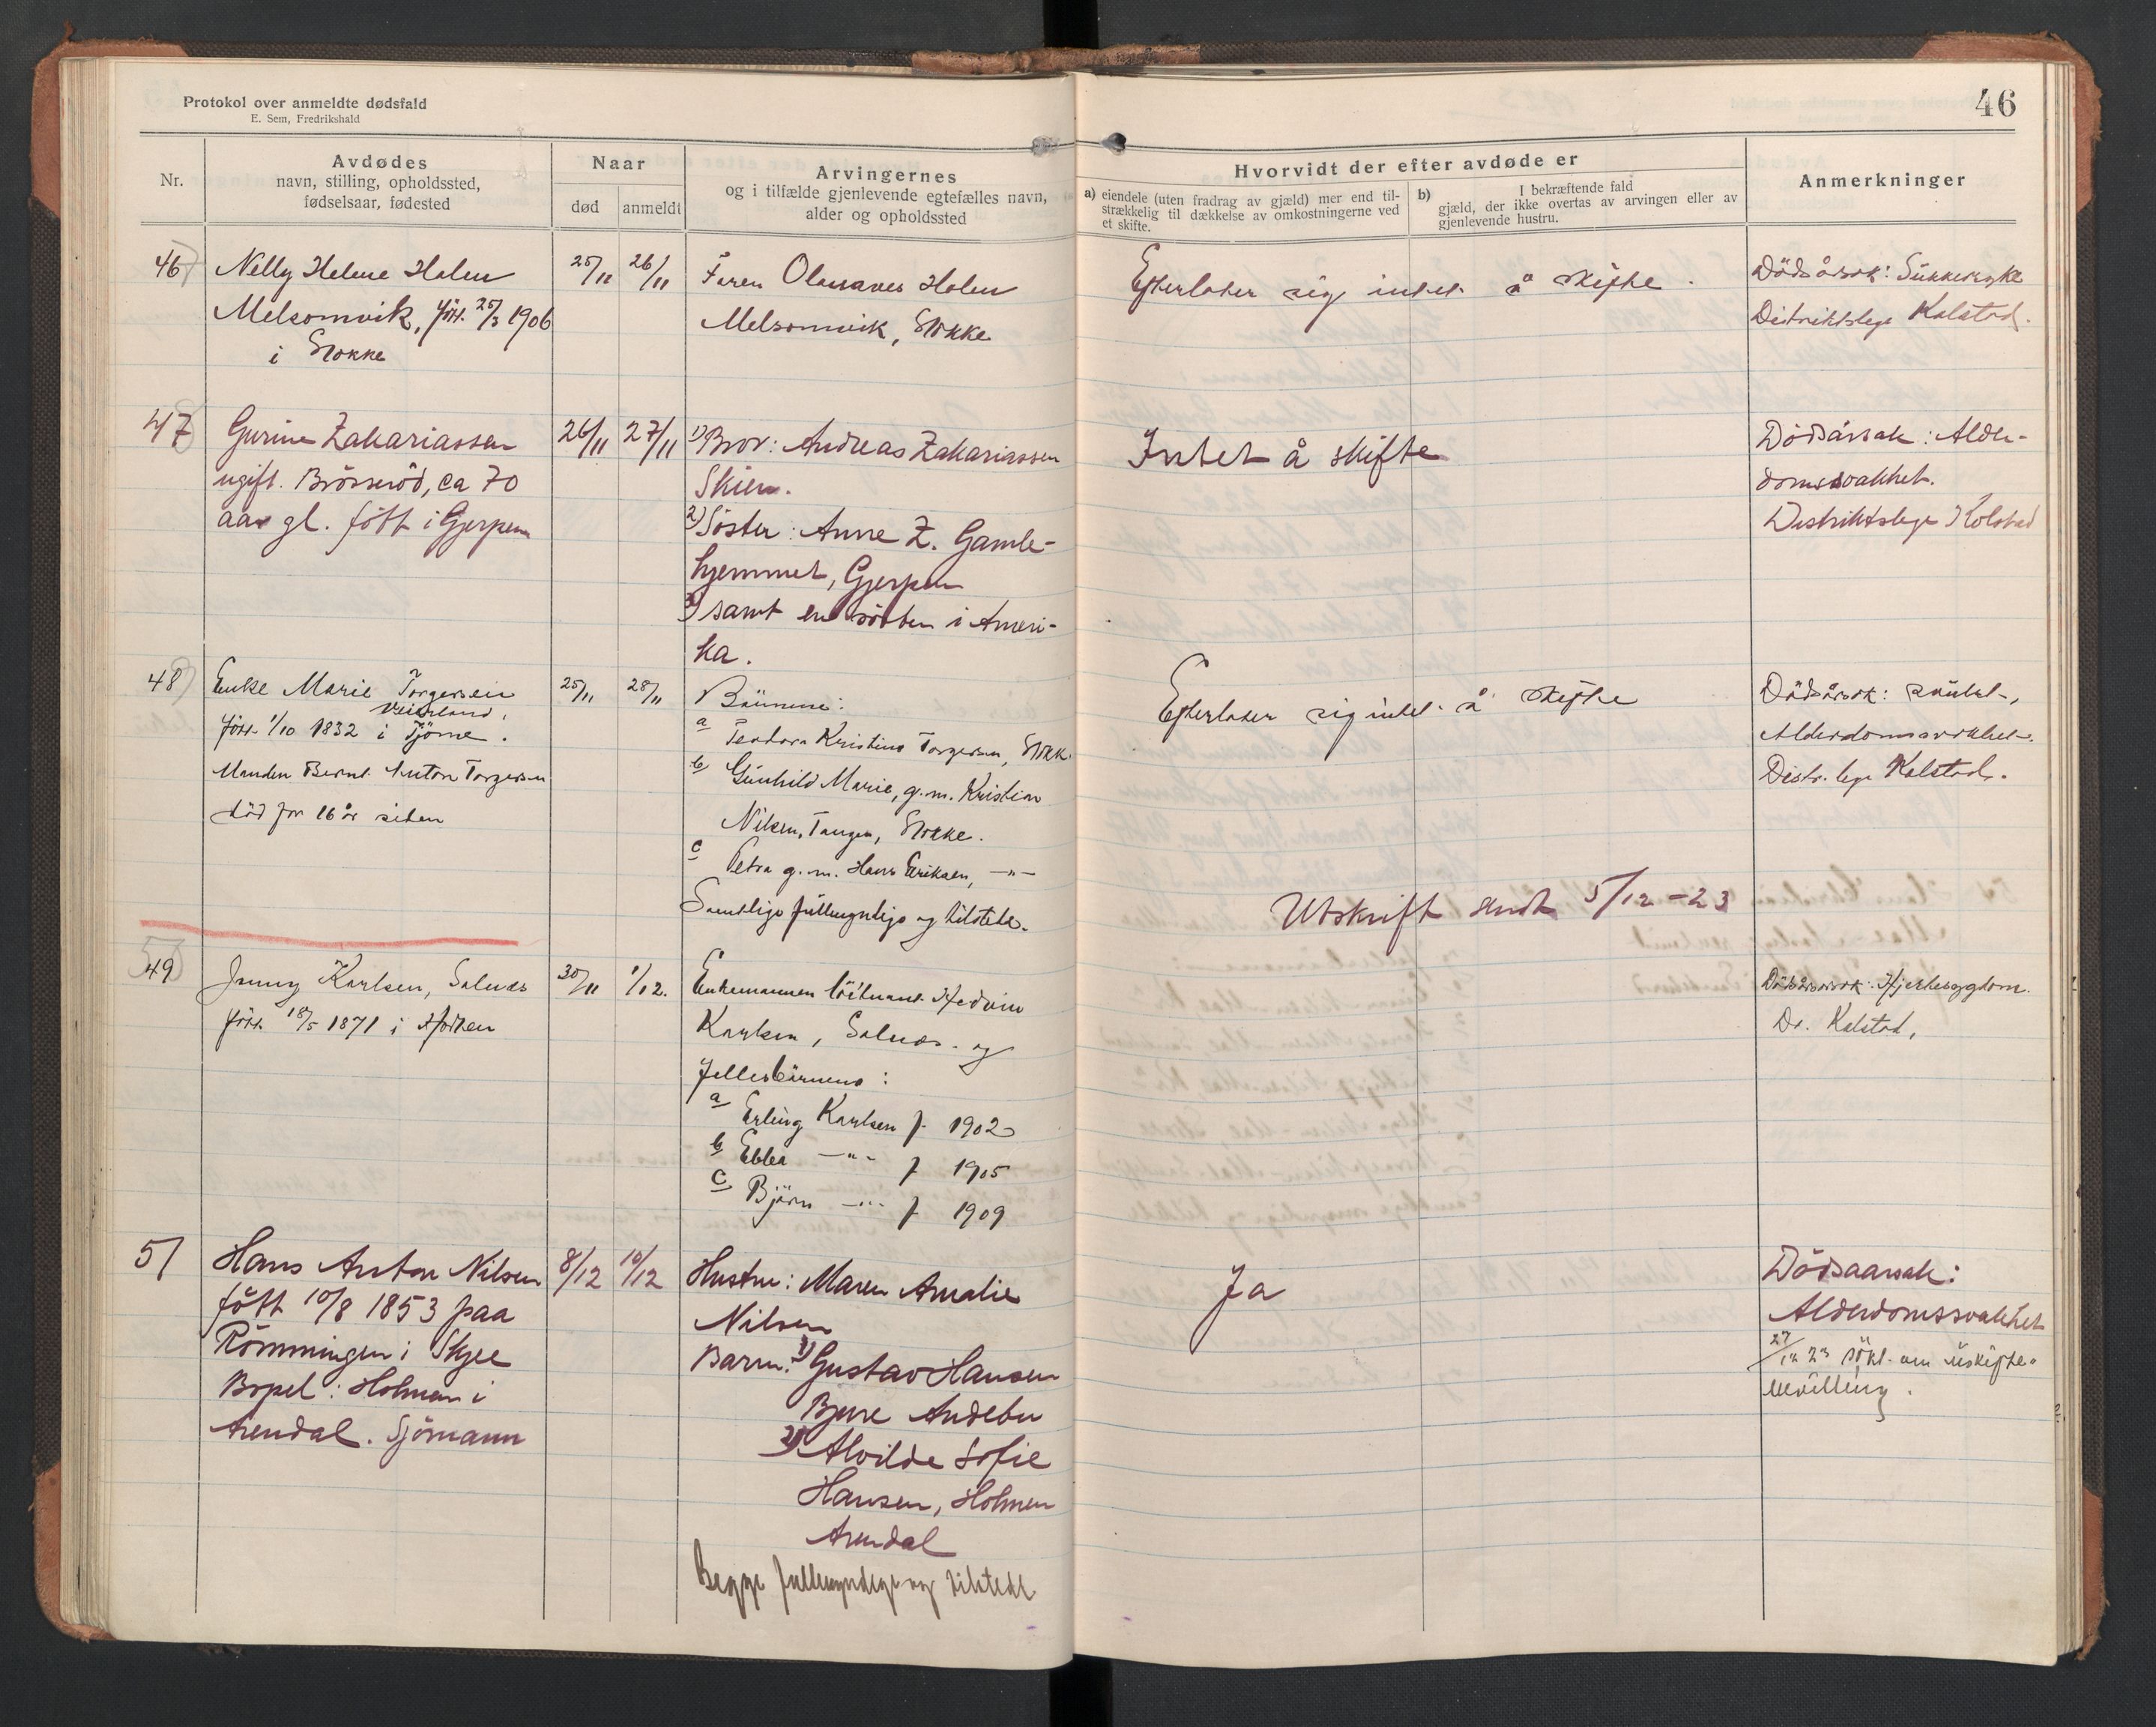 Protokol over anmeldte dødsfald
E. Sem, Fredrikshald
46
Nr.
Avdødes
navn, stilling, opholdssted,
fødselsaar, fødested
Naar
død
anmeldt
Arvingernes
og i tilfælde gjenlevende egtefælles navn,
alder og opholdssted
Hvorvidt der efter avdøde er
a) eiendele (uten fradrag av gjæld) mer end til-
strækkelig til dækkelse av omkostningerne ved
et skifte.
b) I bekræftende fald
gjæld, der ikke overtas av arvingen eller av
gjenlevende hustru.
Anmerkninger
46
Nelly Helene Holen
Melsomvik, født 25/3 1906
i Stokke
25/11
26/11
Faren Olonaves Holen
Melsomvik, Stokke
Efterlater sig intet å skifte.
Dödsårsak: Sukkersyke
Distriktslege Kolstad.
47
Gurine Zakariassen
ugift. Brösseröd, ca 70
aar gl. født i Gjerpen
26/11
27/11
1) Bror: Andreas Zakariassen
Skien.
2) Söster: Anne Z. Gamle-
hjemmet, Gjerpen
3) samt en söster i Ameri-
ka.
Intet å skifte
Dödsårsak: Alder-
domssvakhet.
Distriktslege Kolstad
48
Enke Marie Torgersen
Veierland,
född 1/10 1832 i Tjöme.
Manden Bernt Anton Torgersen
död for 16 år siden
25/11
28/11
Börnene:
a Teodora Kristine Torgersen, Stokk.
b Gunhild Marie, g.m. Kristian
Nilsen, Tangen, Stokke.
c Petra g.m. Hans Eriksen, -"-
Samtlige fuldmyndige og tilstede.
Efterlater sig intet å skifte
Dödsårsak: Alderdomssvakhet.
Distr. lege Kolstad.
Utskrift sendt 5/12-23
49
Jenny Karlsen, Solnæs
född 18/5 1871 i Horten
30/11
1/12.
Enkemannen löitnant Hedvin
Karlsen, Solnæs. og
fellesbörnene:
a Erling Karlsen f. 1902
b Ebba -"- f 1905
c Björn -"- f 1909
Dödsårsak: Hjertesygdom.
Dr. Kolstad,
51
Hans Anton Nilsen
född 10/8 1853 paa
Römmingen i Skjee
Bopel: Holmen i
Arendal. Sjömann
8/12
10/12
Hustru: Maren Amalie
Nilsen
Barn: 1) Gustav Hansen
Bjure Andebu
2) Alvilde Sofie
Hansen, Holmen
Arendal
Begge fuldmyndige og tilstede
Ja
Dödsaarsak:
Alderdomssvakhet
27/12 23 sökt om uskifte-
bevilling.